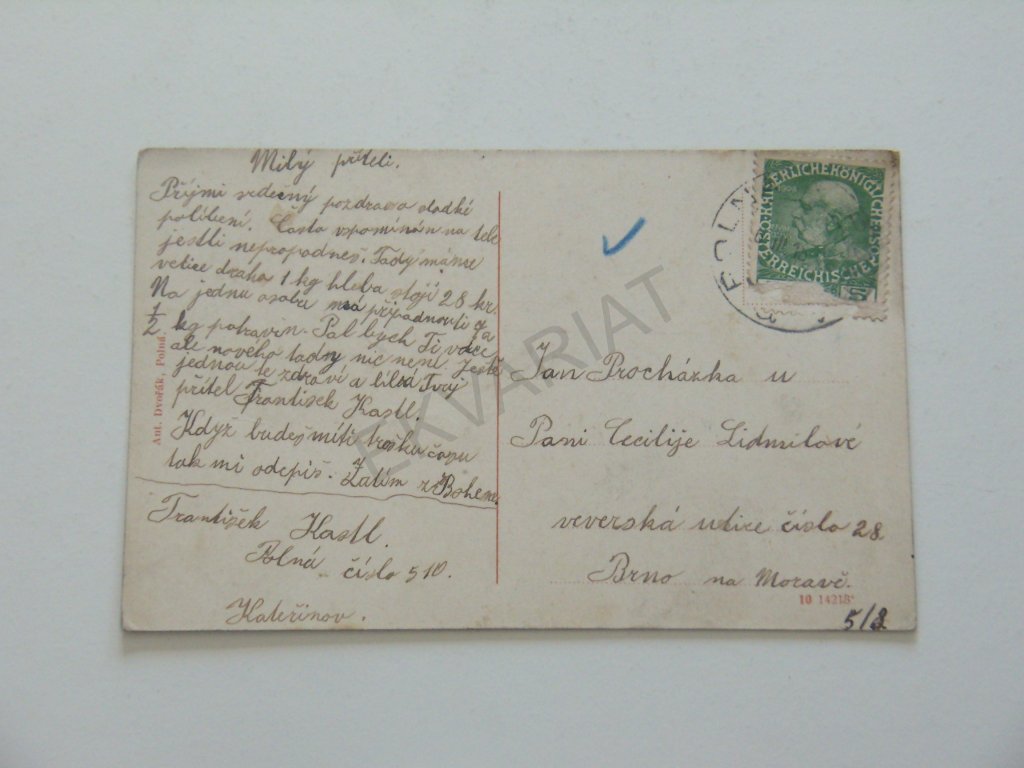 Milý příteli.
Přijmi srdečný pozdrav a sladké
políbení. Často vzpomínám na tebe
jestli nepropadneš. Tady máme
velice draho 1 kg hleba stojí 28 kr.
Na jednu osobu má připadnouti za
1/2 kg potravin. Psal bych Ti více
ale nového tady nic není. Ještě
jednou te zdraví a líbá Tvůj
přítel František Kastl.
Když budeš míti trošku času
tak mi odepiš. Zatím z Bohem.
František
Kastl.
Polná číslo 510.
Kateřinov.
Ant. Dvořák, Polná.
POLNÁ
KAISERLICHE KÖNIGLICHE ÖSTERREICHISCHE
1908
5
Jan Procházka u
Paní Cecilije Lidmilové
veverská ulice číslo 28
Brno na Moravě.
10 14218
EKVARIAT